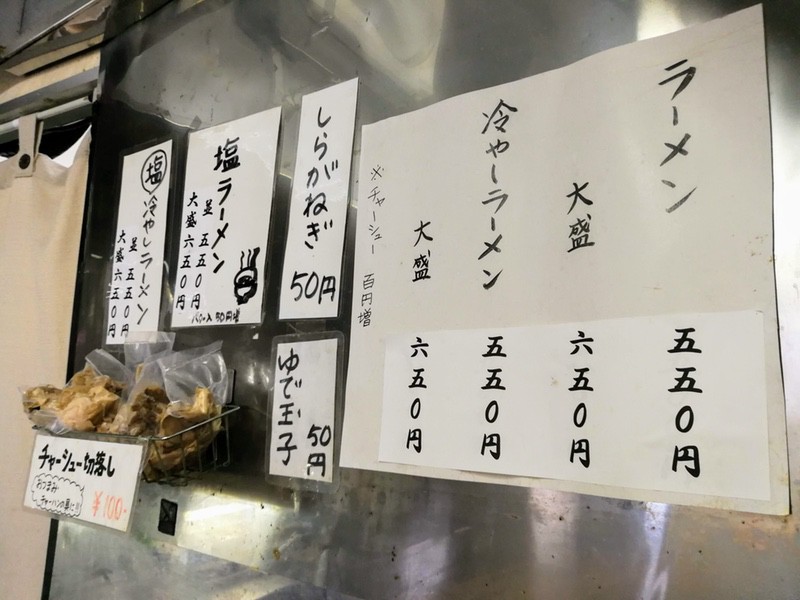 ラーメン 五五〇円
大盛 六五〇円
冷やしラーメン 五五〇円
大盛 六五〇円
※チャーシュー 百円増
しらがねぎ 50円
ゆで玉子 50円
塩ラーメン
並 五五〇円
大盛 六五〇円
バター入 50円増
塩 冷やしラーメン
並 五五〇円
大盛 六五〇円
チャーシュー切落し
おつまみ
チャーハンの具に!!
¥100-